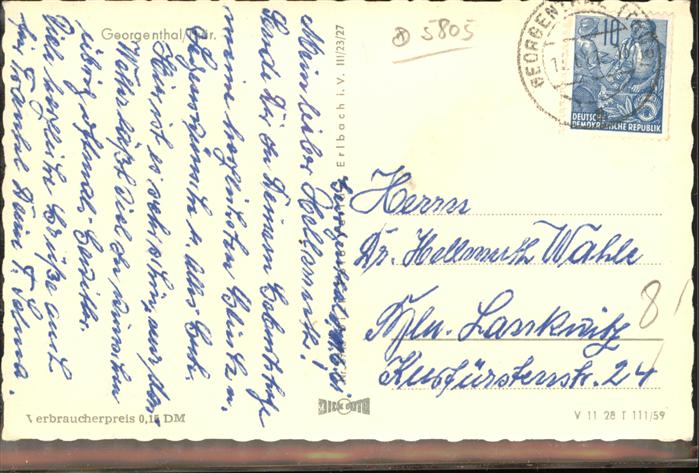 Georgenthal/Thür.
5805
GEORGENTHAL (THÜR)
10
DEUTSCHE
DEMOKRATISCHE REPUBLIK
Mein lieber Hellmuth!
Sende Dir zu Deinem Geburtstage
meine herzlichsten Glück- u.
Segenswünsche u. alles Gute.
Hier ist es sehr schön, nur das
Wetter läßt viel zu wünschen
übrig
Viele herzliche Grüße auch
Deine T. Selma.
Erlbach i. V. III/23/27
Herrn
Dr. Hellmuth Wahle
Bln. Lankwitz
Kurfürstenstr. 24
8
Verbraucherpreis 0,15 DM
DICK FOTO
V 11 28 T 111/59